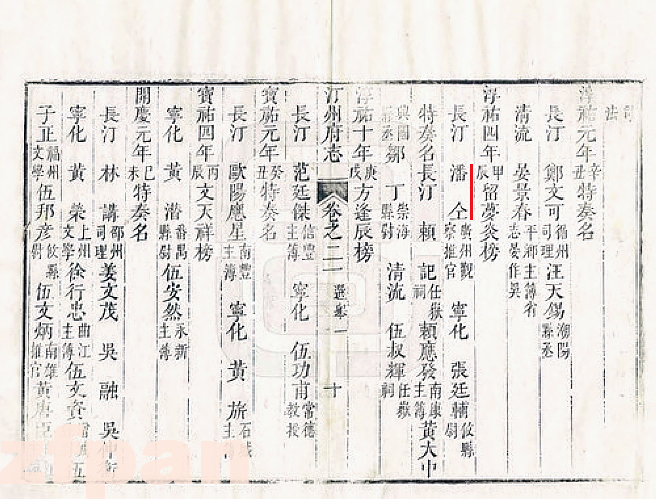 司
法
淳祐元年辛丑特奏名
長汀 鄭文可循州司理 汪天錫潮陽縣丞
清流 晏景春平鄉主簿省志晏作吳
淳祐四年甲辰留夢炎榜
長汀 潘仝廣州觀察推官 寧化 張廷輔攸縣尉
特奏名長汀 賴記任嶽祠 賴應發南康主簿 黃大中
興國 鄒丁崇海縣尉 清流 伍叔輝任嶽祠
淳祐十年庚戌方逢辰榜
汀州府志 卷之二 選舉一 十
長汀 范廷傑信豐主簿 寧化 伍功甫常德教授
寶祐元年癸丑特奏名
長汀 歐陽應星南豐主簿 寧化 黃旂石城主
寶祐四年丙辰文天祥榜
寧化 黃潽番禺縣尉 伍安然永新主簿
開慶元年己未特奏名
長汀 林講邵州司理 姜文茂 吳融 吳
寧化 黃榮上州文學 徐行忠曲江主簿 伍文資 伍
子正福州文學 伍邦彥攸縣尉 伍文炳南雄推官 黃唐臣
zfpan